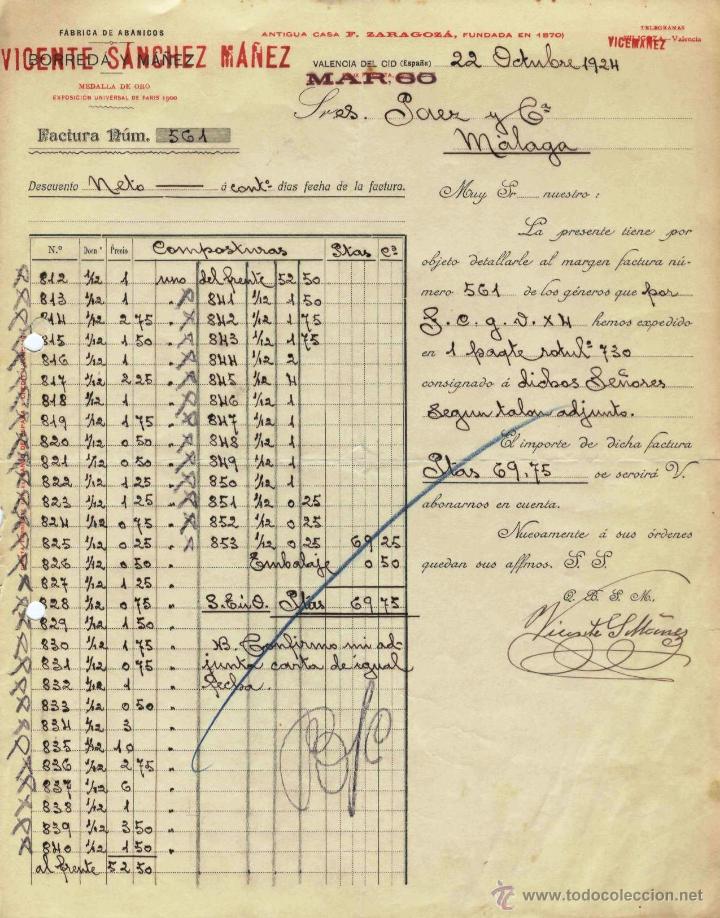 FÁBRICA DE ABANICOS
ANTIGUA CASA F. ZARAGOZÁ, FUNDADA EN 1870)
TELEGRAMAS
VICEMAÑEZ
Valencia
BORREDA Y MÁÑEZ
VICENTE SÁNCHEZ MÁÑEZ
MEDALLA DE ORO
EXPOSICIÓN UNIVERSAL DE PARIS 1900
VALENCIA DEL CID (España) 22 Octubre 1924
MAR, 65
Factura Núm. 561
Sres. Paez y Cª
Málaga
Descuento Neto á contº días fecha de la factura.
Muy Sr nuestro:
La presente tiene por
objeto detallarle al margen factura nú-
mero 561 de los géneros que por
F. C. g. v. x 4 hemos expedido
en 1 paqte rotulº 730
consignado á dichos Señores
segun talon adjunto.
El importe de dicha factura
Ptas 69,75 se servirá V.
abonarnos en cuenta.
Nuevamente á sus órdenes
quedan sus affmos. S. S.
Q. B. S. M.,
Vicente S Máñez
N.º Docn.ª Precio Composturas Ptas Cs
812 1/12 1 uno del frente 52 50
813 1/12 1 " 841 1/12 1 50
814 1/12 2 75 " 842 1/12 1 75
815 1/12 1 50 " 843 1/12 1 75
816 1/12 1 " 844 1/12 2
817 1/12 2 25 " 845 1/12 4
818 1/12 1 " 846 1/12 1
819 1/12 1 75 " 847 1/12 1
820 1/12 0 50 " 848 1/12 1
821 1/12 0 50 " 849 1/12 1
822 1/12 1 25 " 850 1/12 1
823 1/12 1 25 " 851 1/12 0 25
824 1/12 0 75 " 852 1/12 0 25
825 1/12 0 25 " 853 1/12 0 25 69 25
826 1/12 0 50 " Embalaje 0 50
827 1/12 1 25 "
828 1/12 0 75 " S. E. ú O. Ptas 69 75
829 1/12 1 50 "
830 1/12 1 75 " NB. Confirmo mi ad-
831 1/12 0 75 " junta carta de igual
832 1/12 1 " fecha.
833 1/12 0 50 "
834 1/12 3 "
835 1/12 10 "
836 1/12 2 75 "
837 1/12 6 "
838 1/12 1 "
839 1/12 3 50 "
840 1/12 1 50 "
al frente 52 50
© todocoleccion.net
www.todocoleccion.net